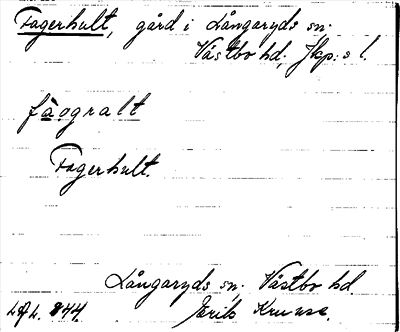 Fagerhult, gård i Långaryds sn.
Västbo hd, Jkp:s l.
fàogralt
Fagerhult.
Långaryds sn. Västbo hd.
Erik Kruuse.